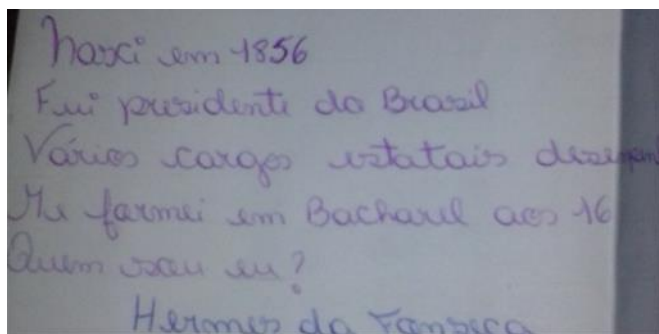 Nasci em 1856
Fui presidente do Brasil
Vários cargos estatais desempen
Me formei em Bacharel aos 16
Quem sou eu?
Hermes da Fonseca